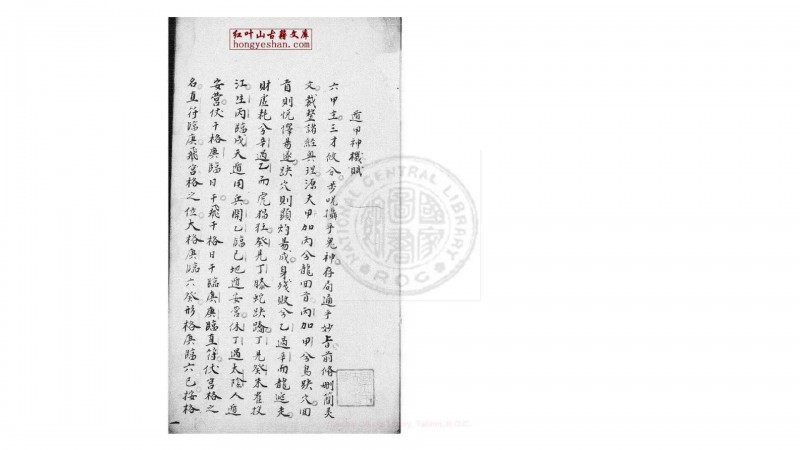 红叶山古籍文库
hongyeshan.com
遁甲神機賦
六甲主三才攸分步咒攝乎鬼神存局通乎妙旨前脩删簡灵
文裁整諸經奥理源夫甲加丙兮龍回首丙加甲兮鳥跌穴回
首則悦懌易遂跌穴則顯灼易成身殘敗兮乙遇辛而龍逃走
財虚耗兮辛遇乙而虎猖狂癸見丁螣蛇跌蹻丁見癸朱雀投
江生丙臨戌天遁用兵開乙臨己地遁安營休丁遇太陰人遁
安營伏干格庚臨日干飛干格日干臨庚庚臨直符伏宮格之
名直符臨庚飛宮格之位大格庚臨六癸形格庚臨六己按格
NATIONAL CENTRAL LIBRARY
國家圖書館
ROC